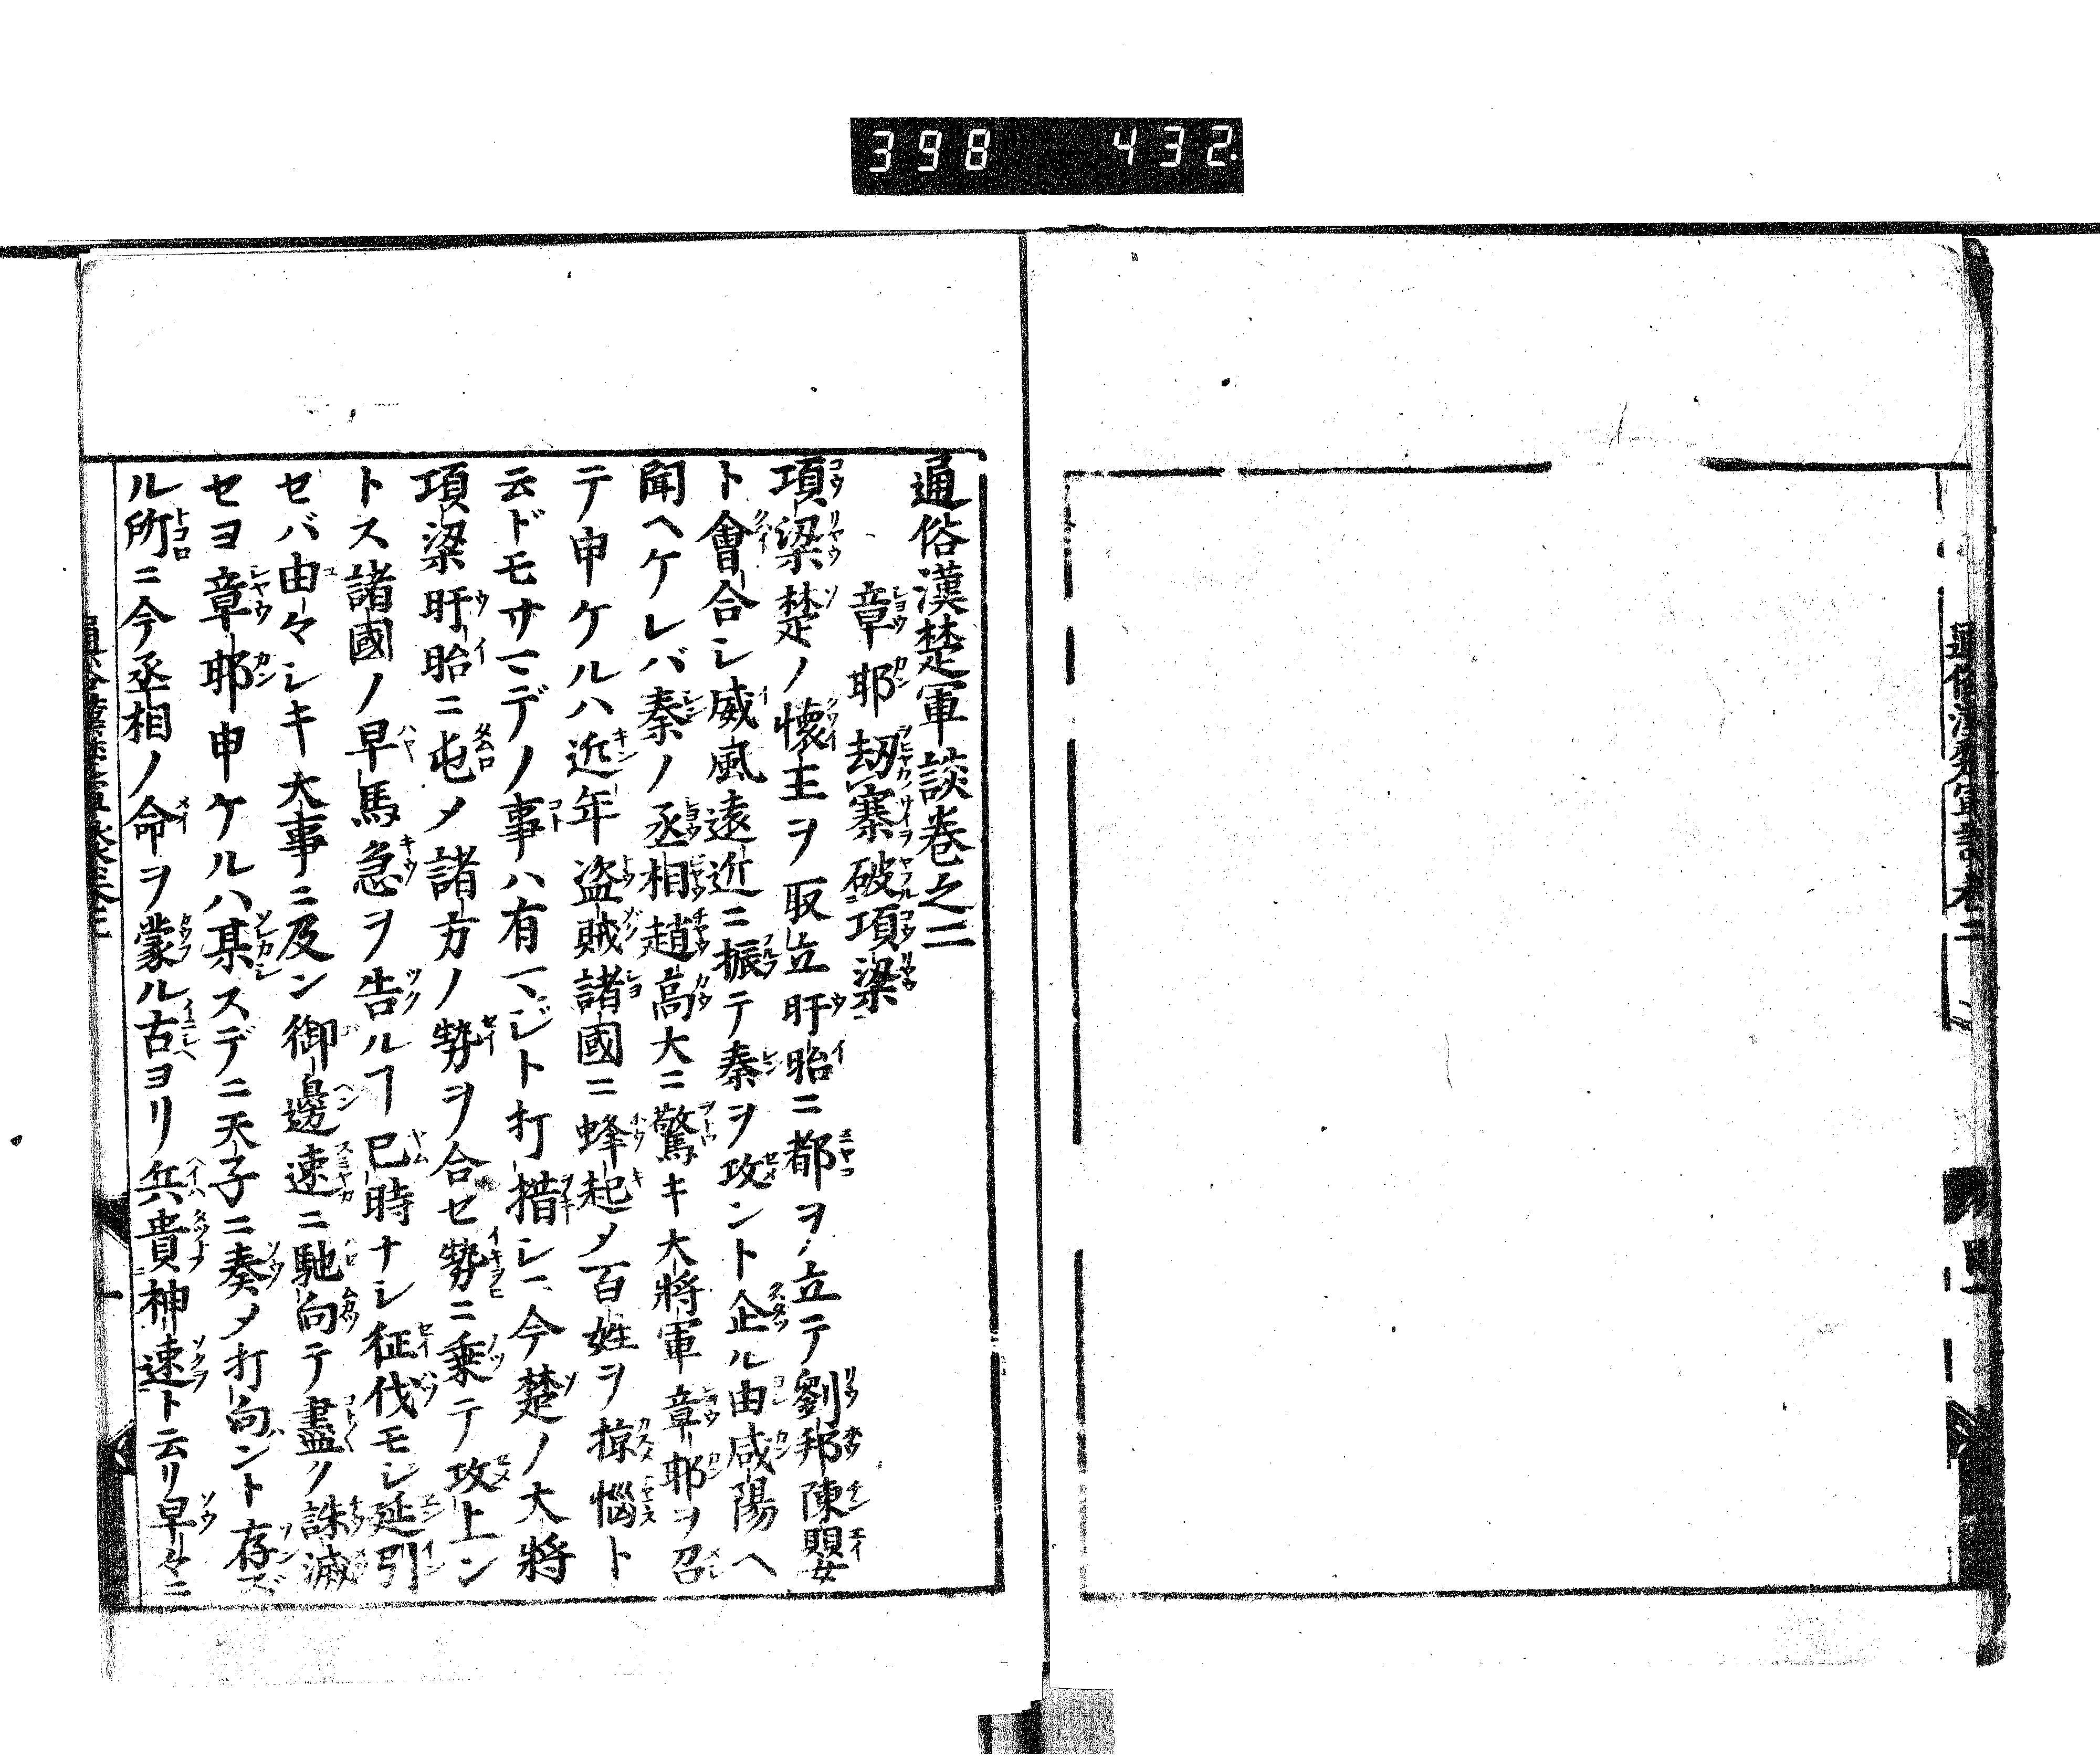 398 432
通俗漢楚軍談卷之二
章邯劫寨破項梁
項梁楚ノ懷王ヲ取立盱眙ニ都ヲ立テ劉邦陳嬰
ト會合シ威風遠近ニ振テ秦ヲ攻ント企ル由咸陽ヘ
聞ヘケレバ秦ノ丞相趙高大ニ驚キ大將軍章邯ヲ召
テ申ケルハ近年盗賊諸國ニ蜂起乄百姓ヲ掠惱ト
云ドモサマデノ事ハ有マジト打措シニ今楚ノ大將
項梁盱眙ニ屯乄諸方ノ勢ヲ合セ勢ニ乗テ攻上ン
トス諸國ノ早馬急ヲ告ルヿ已時ナシ征伐モシ延引
セバ由々シキ大事ニ及ン御邊速ニ馳向テ盡ク誅滅
セヨ章邯申ケルハ某スデニ天子ニ奏乄打向ント存ズ
ル所ニ今丞相ノ命ヲ蒙ル古ヨリ兵貴神速ト云リ早々ニ
通俗漢楚軍談卷二